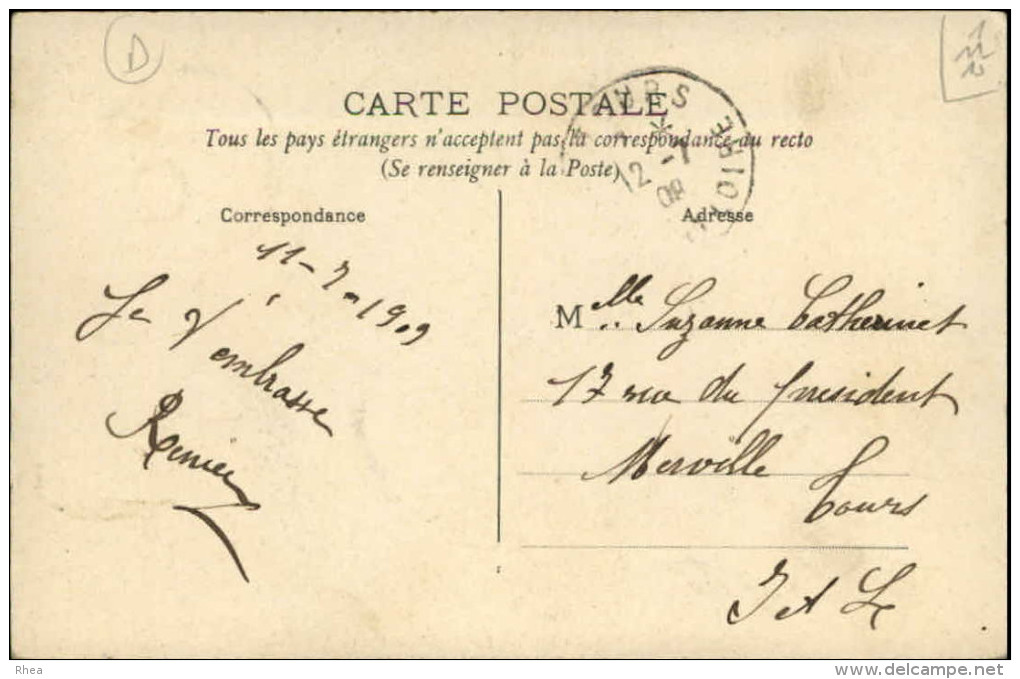 D
CARTE POSTALE
Tous les pays étrangers n'acceptent pas la correspondance au recto
(Se renseigner à la Poste)
TOURS
*
12 -7
09
LOIRE
Correspondance
Adresse
11-7-1909
Je t'
embrasse
M elle Suzanne Catherinet
17 rue du president
Merville
Tours
I et L
Rhea
www.delcampe.net